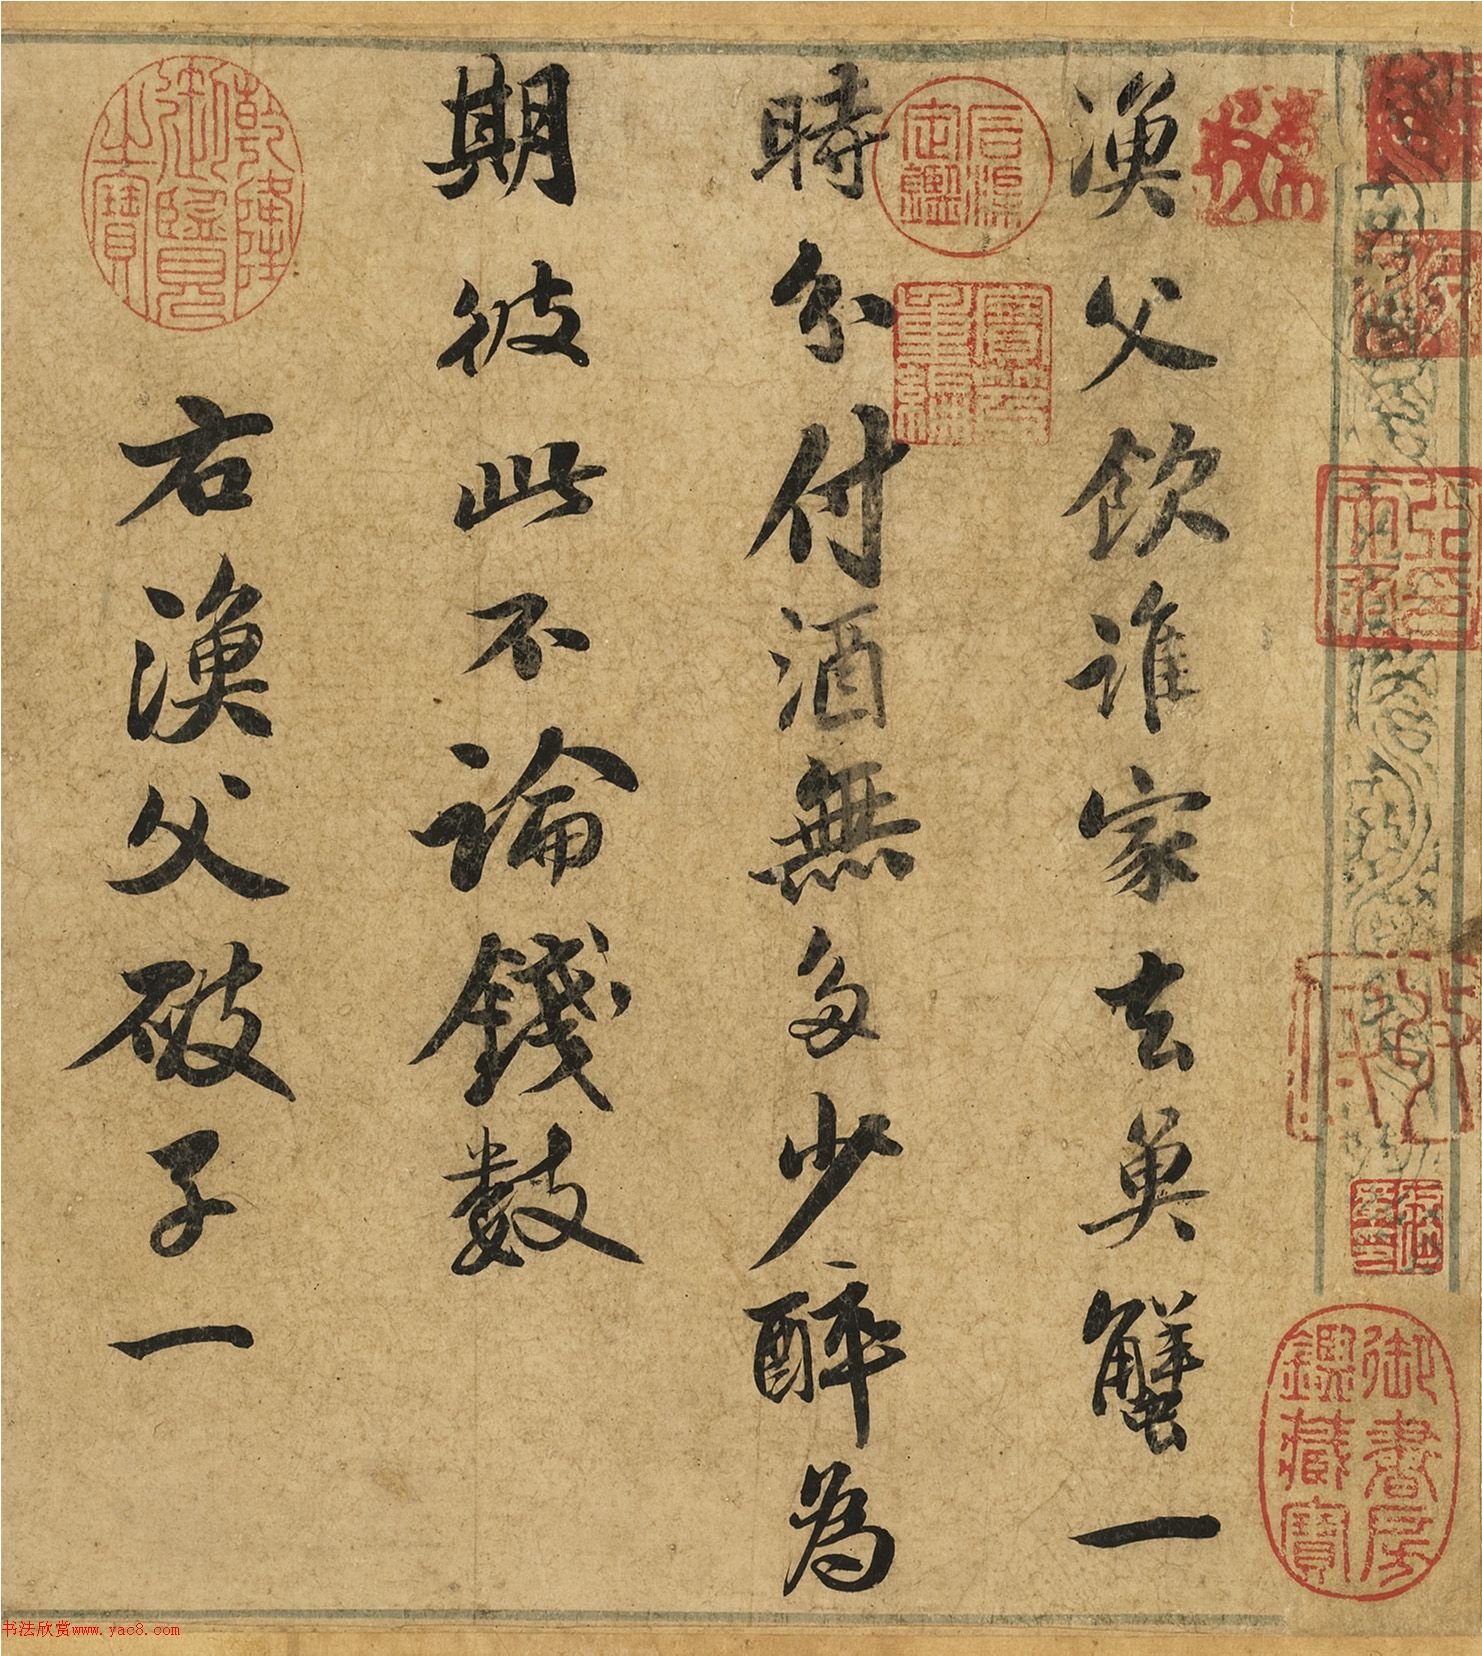 漁父飲誰家去魚蟹一
時分付酒無多少醉為
期彼此不論錢數
右漁父破子一
乾隆御覽之寶
石渠定鑑
寶笈重編
石渠寶笈
御書房鑑藏寶
书法欣赏www.yac8.com